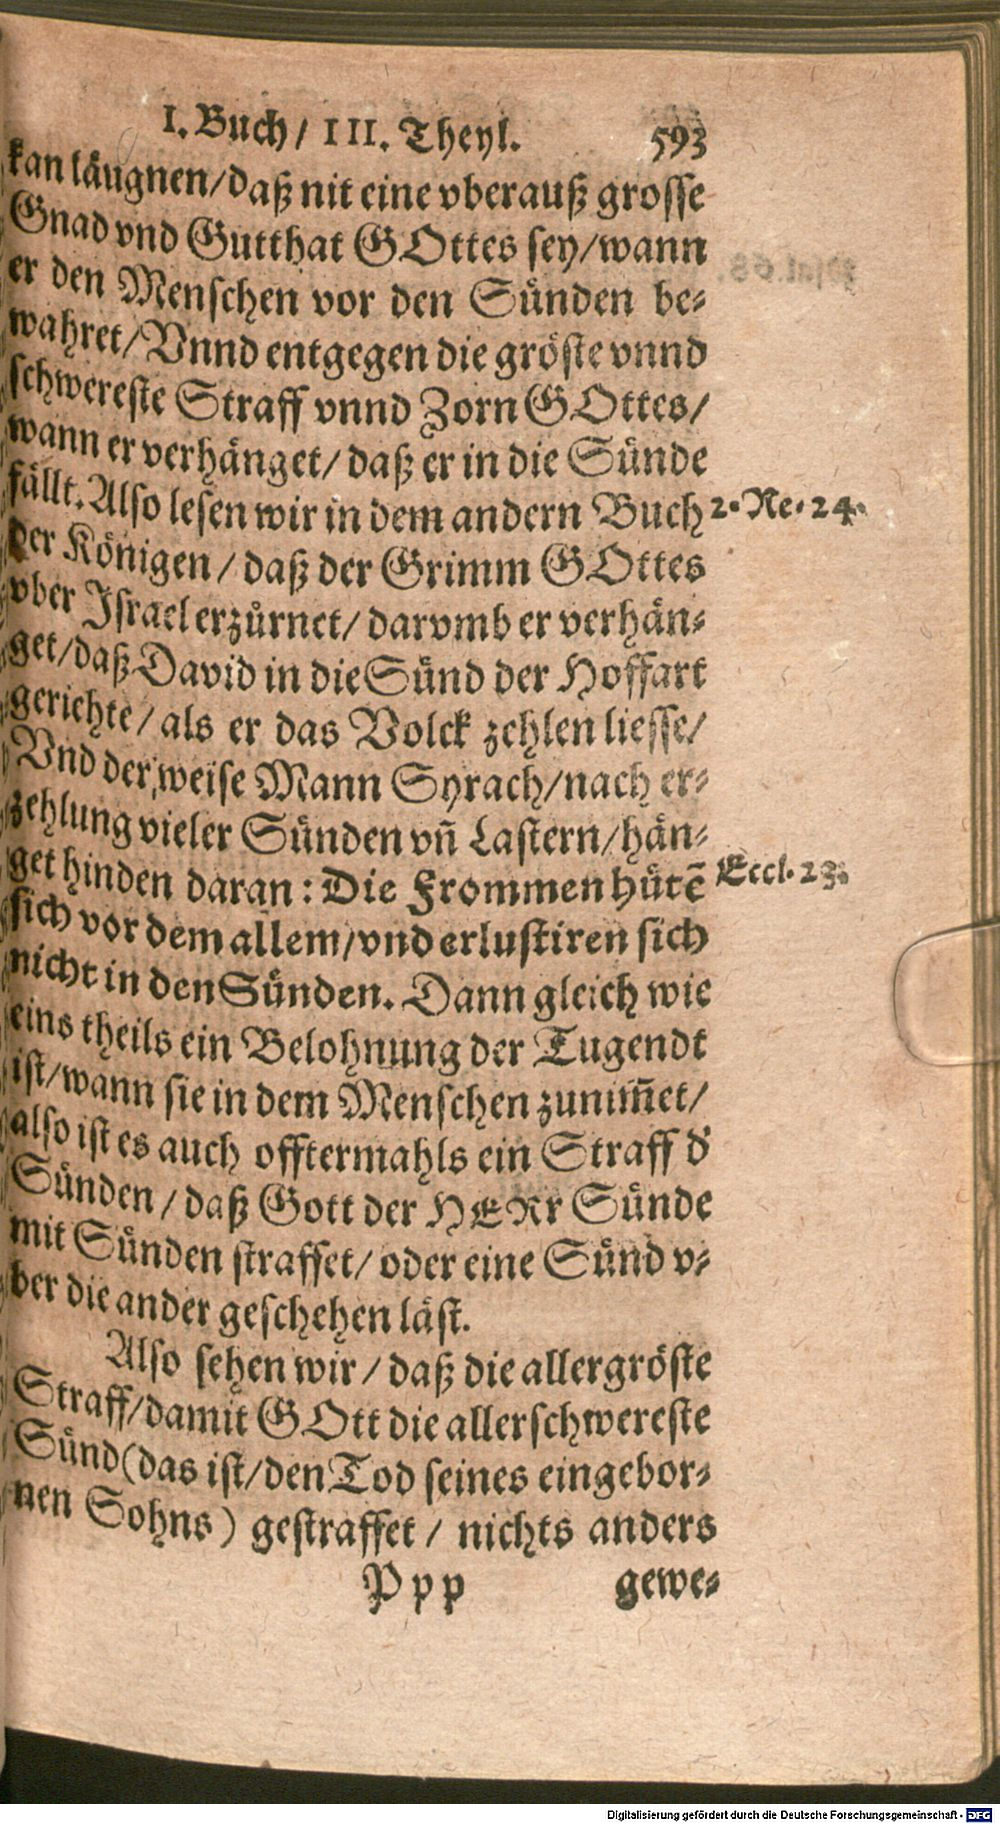 I. Buch / III. Theyl. 593
kan läugnen / daß nit eine vberauß grosse
Gnad vnd Gutthat GOttes sey / wann
er den Menschen vor den Sünden be-
wahret / Vnnd entgegen die gröste vnnd
schwereste Straff vnnd Zorn GOttes /
wann er verhänget / daß er in die Sünde
fällt. Also lesen wir in dem andern Buch 2. Re. 24.
der Königen / daß der Grimm GOttes
vber Israel erzürnet / darvmb er verhän-
get / daß David in die Sünd der Hoffart
geriehte / als er das Volck zehlen liesse /
Vnd der weise Mann Syrach / nach er-
zehlung vieler Sünden vñ Lastern / hän-
get hinden daran : Die Frommen hütẽ Eccl. 23.
sich vor dem allem / vnd erlustiren sich
nicht in den Sünden. Dann gleich wie
eins theils ein Belohnung der Tugendt
ist / wann sie in dem Menschen zunim̃et /
also ist es auch offtermahls ein Straff d'
Sünden / daß Gott der HERr Sünde
mit Sünden straffet / oder eine Sünd v-
ber die ander geschehen läst.
Also sehen wir / daß die allergröste
Straff / damit GOtt die allerschwereste
Sünd (das ist / den Tod seines eingebor-
nen Sohns) gestraffet / nichts anders
Ppp gewe-
Digitalisierung gefördert durch die Deutsche Forschungsgemeinschaft - DFG